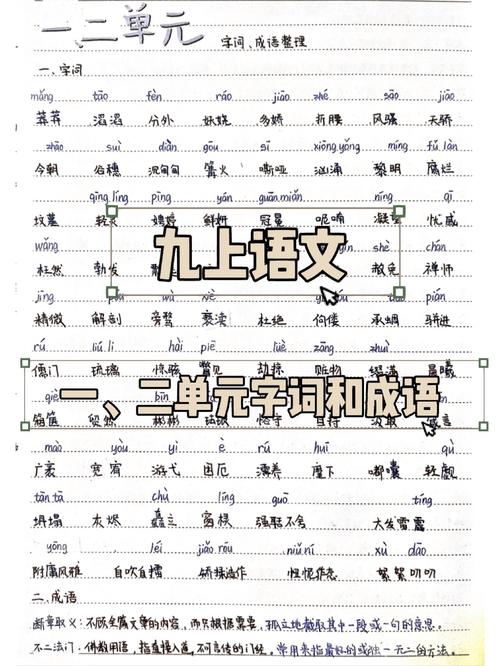 一二单元
字词、成语整理
一、字词
mǎng tāo fèn ráo jiāo zhé sāo jiāo
莽莽 滔滔 分外 妖娆 多娇 折腰 风骚 天骄
zhāo suì diān gōu sī xiōng yǒng míng fǔ làn
今朝 谷穗 沉甸甸 篝火 嘶哑 汹涌 黎明 腐烂
qīng líng pīng yán guān miǎn níng qī
坟墓 轻灵 娉婷 鲜妍 冠冕 呢喃 凝望 忧戚
wǎng shè chán
枉然 勃发 赦免 禅师
九上语文
jīng pōu wù xiè pián
精微 解剖 旁骛 亵渎 杜绝 佝偻 承蜩 骈进
rú liú li hài piē lüè zāng
儒门 琉璃 惊骇 瞥见 劫掠 赃物
一、二单元字词和成语
箱箧 贸然 彬彬
mào yòu yì è rú huī qù
广袤 宽宥 游弋 困厄 濡养 麾下 嘟囔 轻觑
tān tā chù líng guō tíng
坍塌 灰烬 矗立 窗棂 强聒不舍 大发雷霆
yōng léi jiǎo róu niǔ ní xù dāo
附庸风雅 自吹自擂 矫揉造作 忸怩作态 絮絮叨叨
二、成语
断章取义：不顾全篇文章的内容，而只根据需要，孤立地截取其中一段或一句的意思。
不二法门：佛教用语，指直接入道，不可言传的门径。常用来指最好的或独一无二的方法。